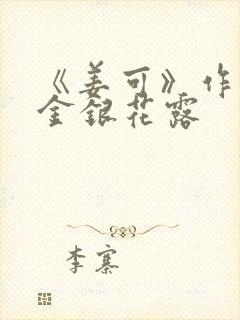 《姜可》作
金银花露
李寨